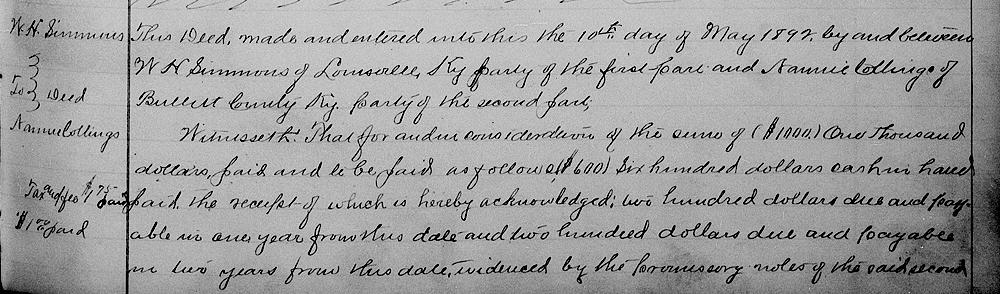 W. H. Simmons
To } Deed
Nannie Collings
Tax and fee $1.75 paid
$1.00 paid
This Deed, made and entered into this the 10th day of May 1892, by and between
W H Simmons of Louisville, Ky party of the first part and Nannie Collings of
Bullitt County Ky. party of the second part,
Witnesseth. That for and in consideration of the sum of ($1000.) One thousand
dollars, paid and to be paid as follows ($600) Six hundred dollars cash in hand
paid, the receipt of which is hereby acknowledged; two hundred dollars due and pay-
able in one year from this date and two hundred dollars due and payable
in two years from this date, evidenced by the promissory notes of the said second